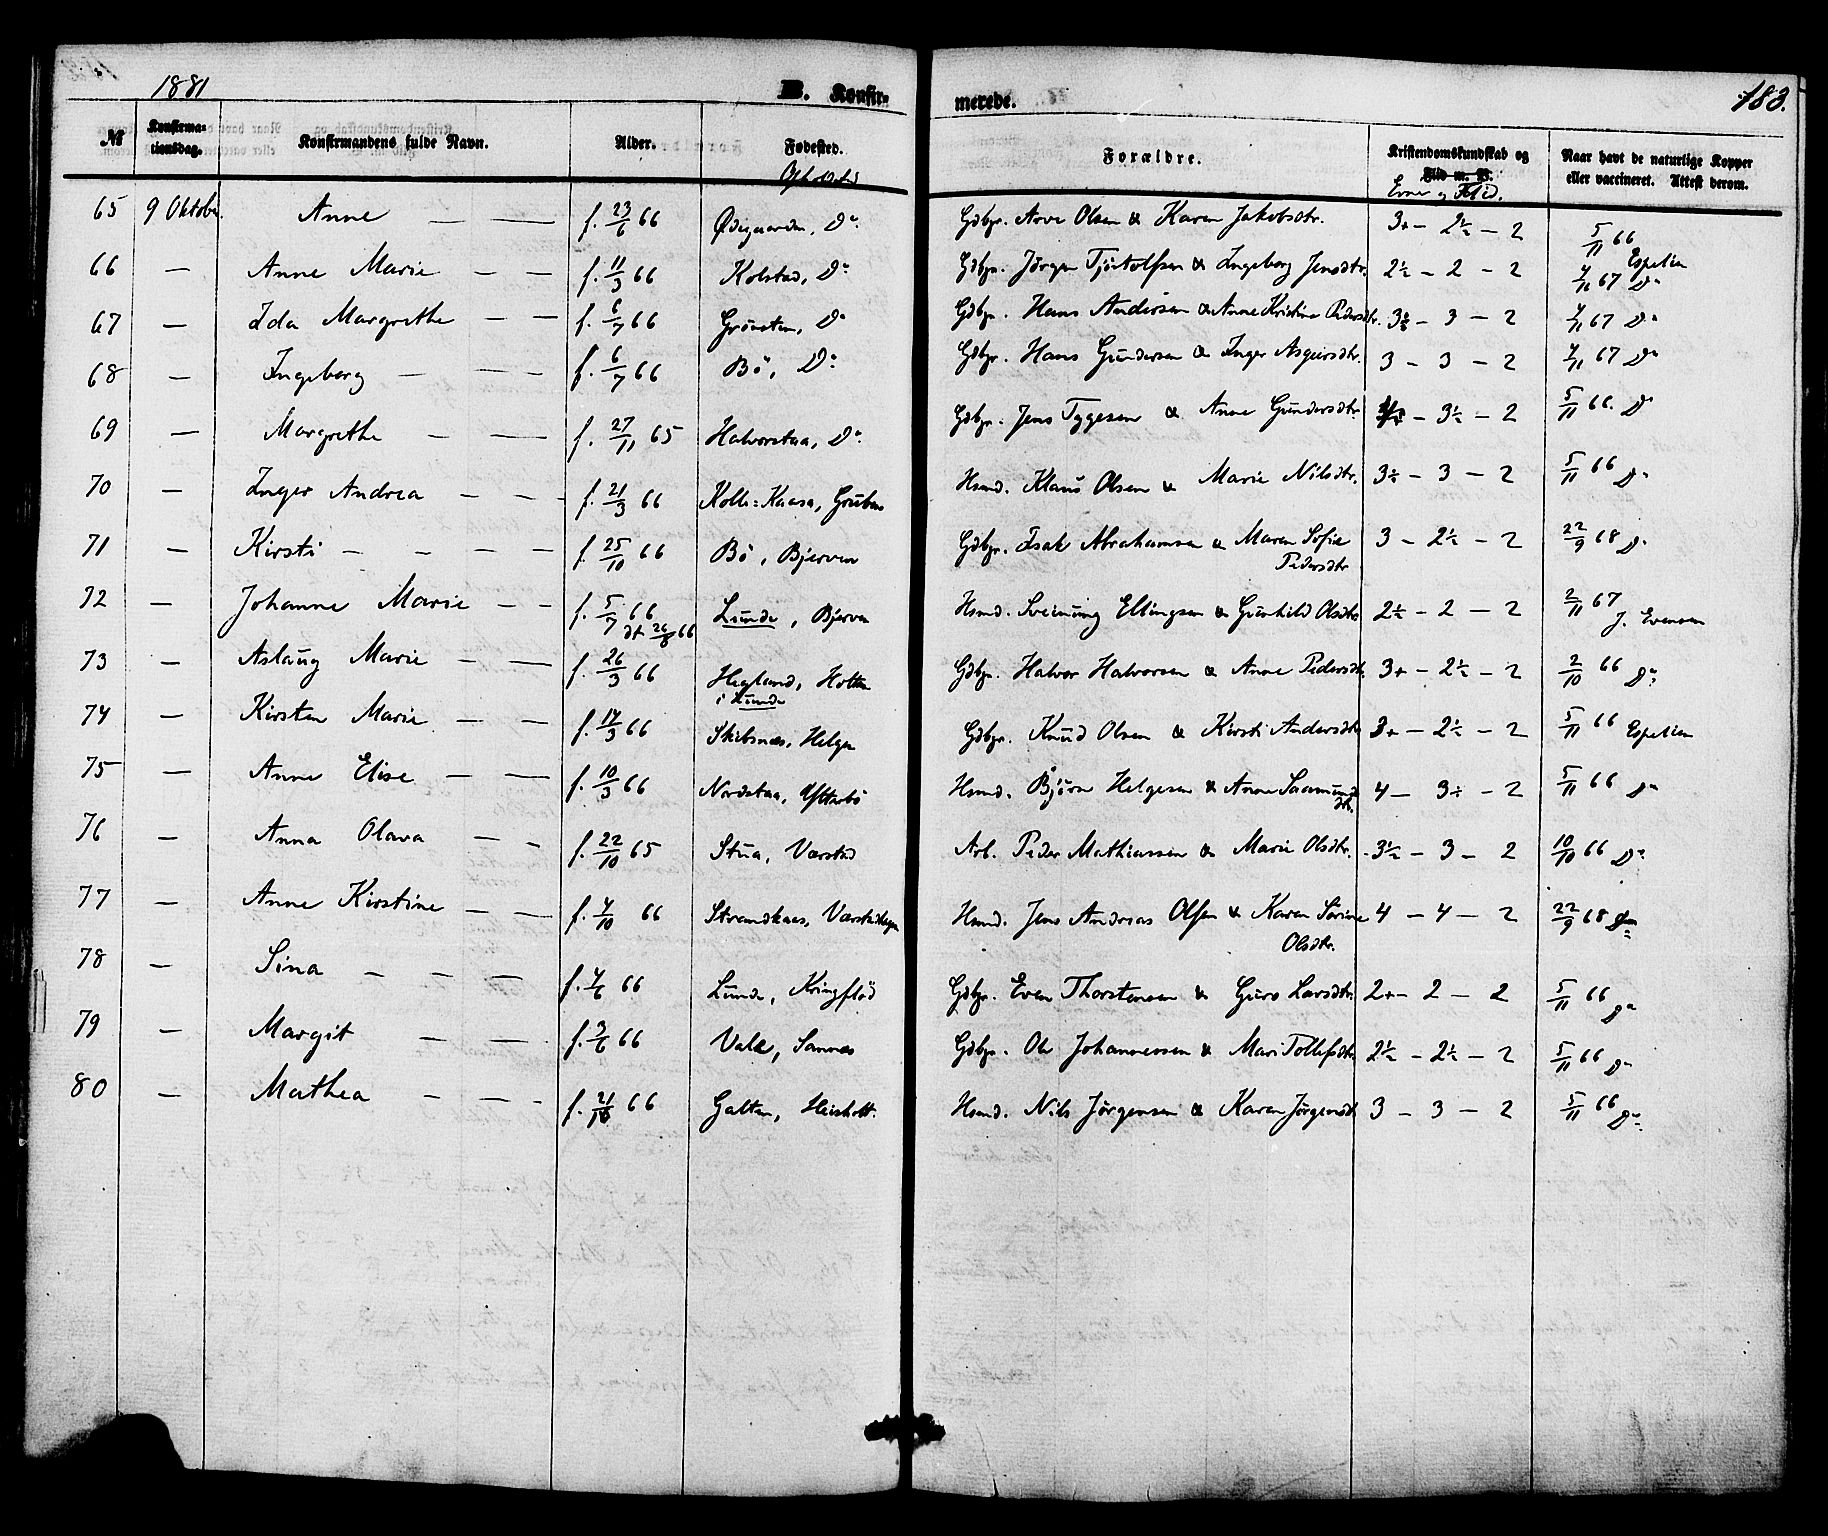 1881 B. Konfir- merede. 183.
№ Konfirma-tionsdag. Konfirmandens fulde Navn. Alder. Fødested. Opholds Forældre. Kristendomskundskab og Flid m. V. Evner og Flid. Naar havt de naturlige Kopper eller vaccineret. Attest derom.
65 9 Oktober. Anne — — f. 23/6 66 Ødegaarden, Do Gdbgr. Arve Olsen & Karen Jakobsdtr. 3+ – 2½ – 2 5/11 66 Espelien
66 — Anne Marie — — f. 11/3 66 Kolstad, Do Gdbgr. Jörgen Tjöstolfsen & Ingeborg Jensdtr. 2½ – 2 – 2 4/11 67 Do
67 — Ida Margrethe — — f. 6/7 66 Grönsten, Do Gdbgr. Hans Andersen & Anne Kristine Pedersdtr. 3½ – 3 – 2 4/11 67 Do
68 — Ingeborg — — — f. 6/7 66 Bö, Do Gdbgr. Hans Gundersen & Inger Asgersdtr. 3 – 3 – 2 4/11 67 Do
69 — Margrethe — — f. 27/11 65 Halvorstaa, Do Gdbgr. Jens Tygesen & Anne Gundersdtr. – 3½ – 2 5/11 66. Do
70 — Inger Andrea — — — f. 21/3 66 Kolle=Kaasa, Gruben Hsmd. Klaus Olsen & Marie Nilsdtr. 3½ – 3 – 2 5/11 66 Do
71 — Kirsti — — — — f. 25/10 66 Bö, Bjerven Gdbgr. Isak Abrahamsen & Maren Sofie Pedersdtr 3 – 2½ – 2 22/9 68 Do
72 — Johanne Marie — — f. 5/7 66 dt 26/8 66 Lunde, Bjerven Hsmd. Sveinung Ellingsen & Gunhild Olsdtr 2½ – 2 – 2 2/11 67 J. Evensen
73 — Aslaug Marie — — f. 26/3 66 Hegland, Holten i Lunde Gdbgr. Halvor Halvorsen & Anne Pedersdtr. 3+ – 2½ – 2 2/10 66 Do
74 — Kirsten Marie — — f. 14/3 66 Skibsnæs, Helgen Gdbgr. Knud Olsen & Kirsti Andersdtr 3+ – 2½ – 2 5/11 66 Espelien
75 — Anne Elise — — f. 10/3 66 Nordstaa, Ytterbö Hsmd. Björn Helgesen & Anne Saamunddtr. 4 – 3÷ – 2 5/11 66 Do
76 — Anna Olava — — f. 22/10 65 Stua, Værstad Arb. Peder Mathiassen & Marie Olsdtr. 3½ – 3 – 2 10/10 66 Do
77 — Anne Kirstine — — f. 4/10 66 Strandkaas, Værstadeie Hsmd. Jens Andreas Olsen & Karen Sörine Olsdtr. 4 – 4 – 2 22/9 68 Do
78 — Sina — — — f. 4/6 66 Lunde, Kringflöd Gdbgr. Even Thorstensen & Guro Larsdtr. 2+ – 2 – 2 5/11 66 Do
79 — Margit — — f. 3/6 66 Vale, Sannes Gdbgr. Ole Johannessen & Mari Tollefsdtr. 2½ – 2½ – 2 5/11 66 Do
80 — Mathea — — — f. 21/10 66 Galten, Heisholt. Hsmd. Nils Jörgensen & Karen Jörgensdt. 3 – 3 – 2 5/11 66 Do